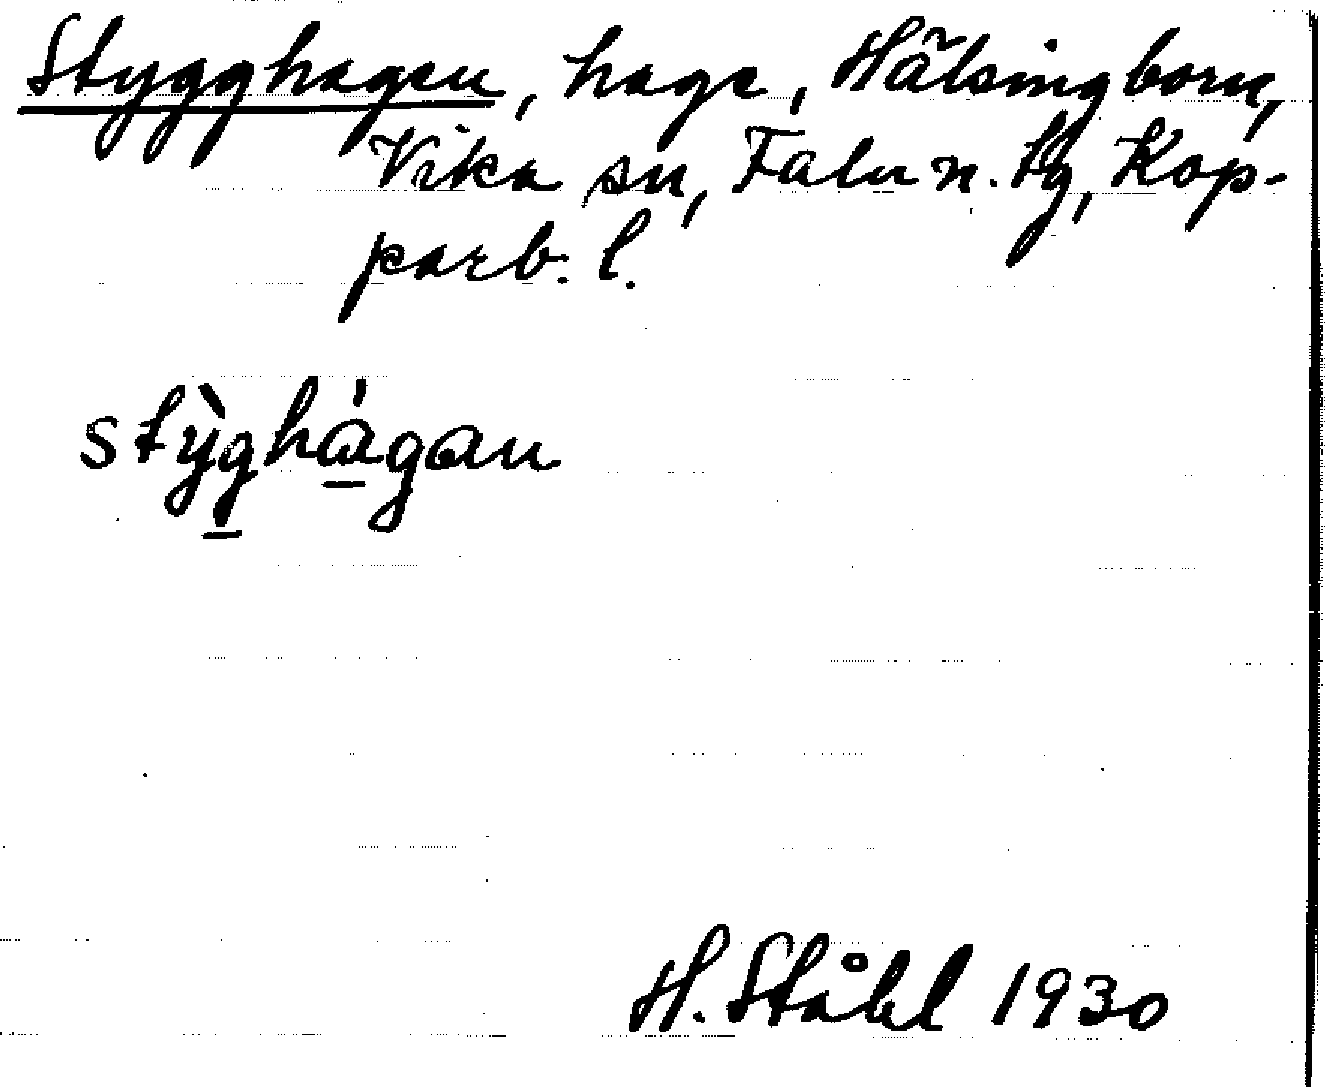 Stygghagen, hage, Hälsingborn,
Vika sn, Falu n. tg, Kop-
parb. l.
stỳg̱há̱gan
H. Ståhl 1930